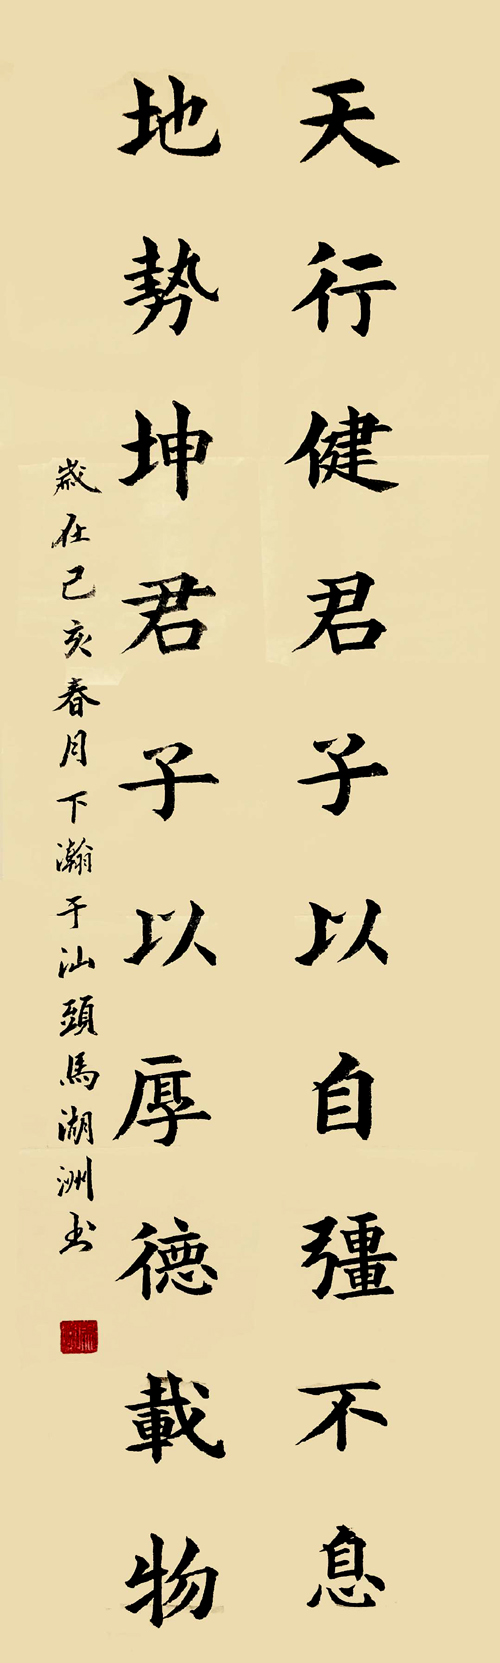 天行健君子以自彊不息
地勢坤君子以厚德載物
歲在己亥春月下瀚于汕頭馬湖洲书